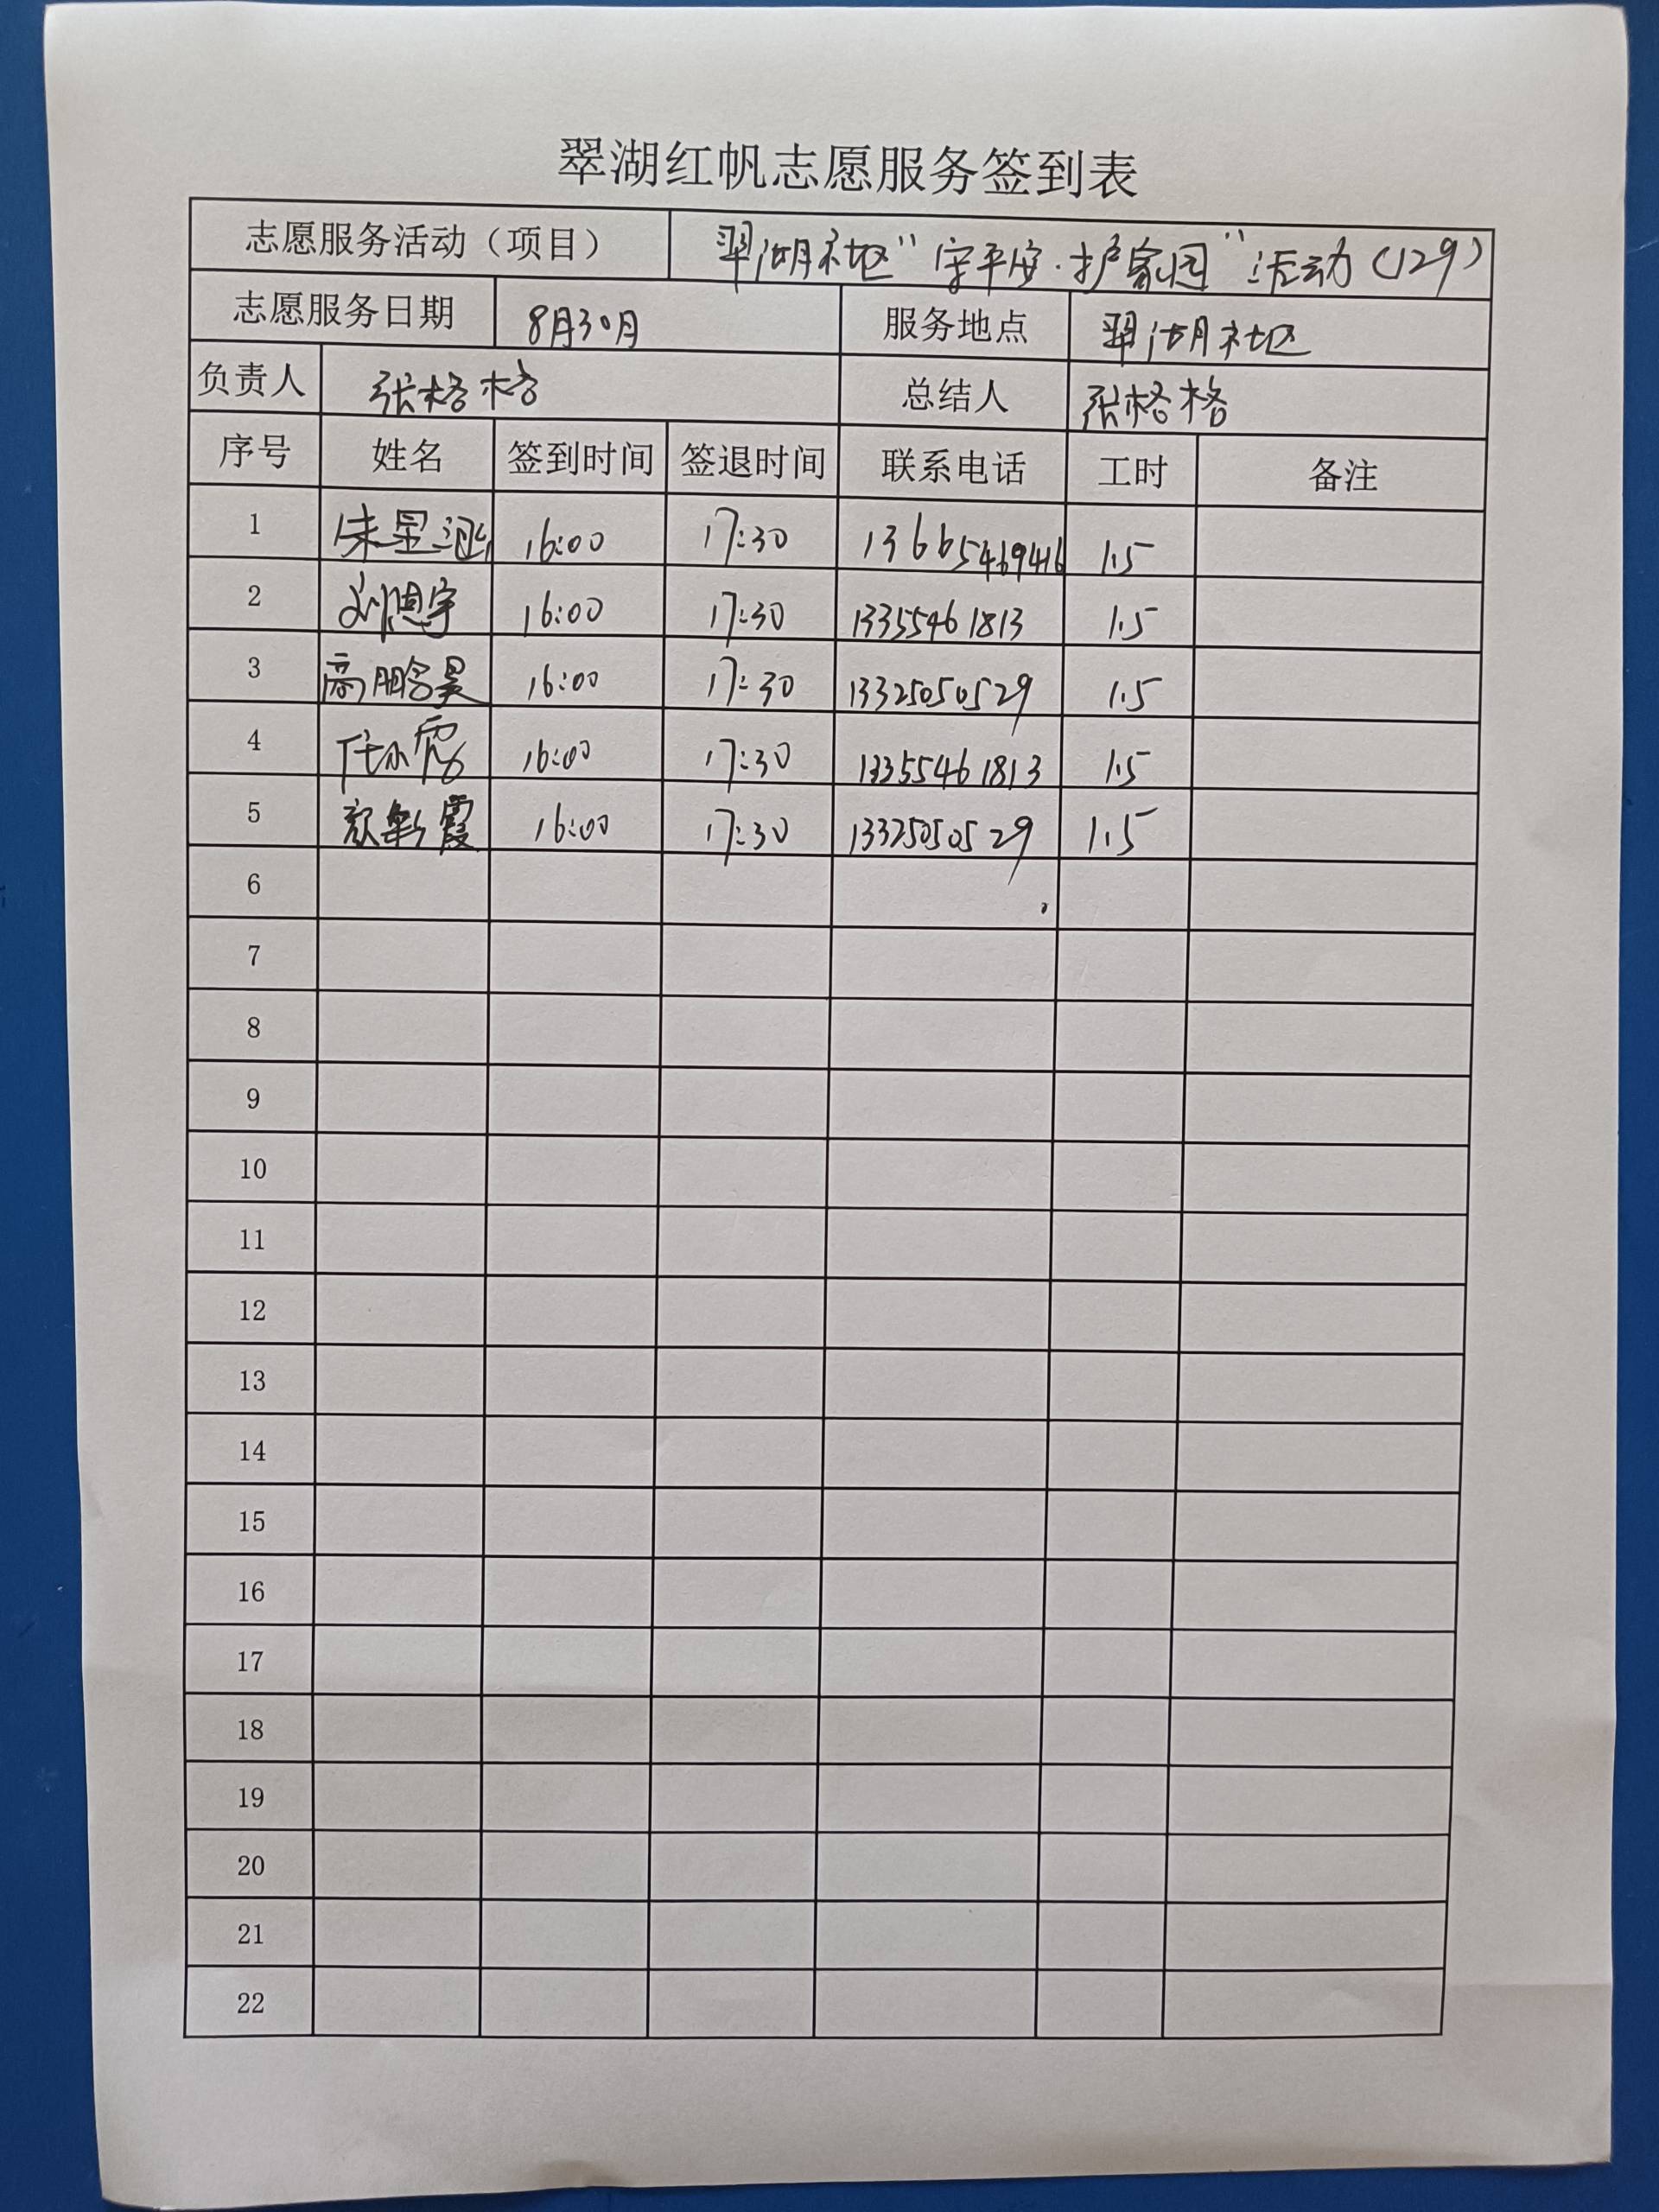 翠湖红帆志愿服务签到表
志愿服务活动（项目） 翠湖社区“守平安·护家园”活动（129）
志愿服务日期 8月30日 服务地点 翠湖社区
负责人 张格格 总结人 张格格
序号 姓名 签到时间 签退时间 联系电话 工时 备注
1 朱星 16:00 17:30 13665469416 1.5
2 刘恩宇 16:00 17:30 13355461813 1.5
3 高鹏昊 16:00 17:30 13325050529 1.5
4 任小霞 16:00 17:30 13355461813 1.5
5 颜彩霞 16:00 17:30 13325050529 1.5
6
7
8
9
10
11
12
13
14
15
16
17
18
19
20
21
22